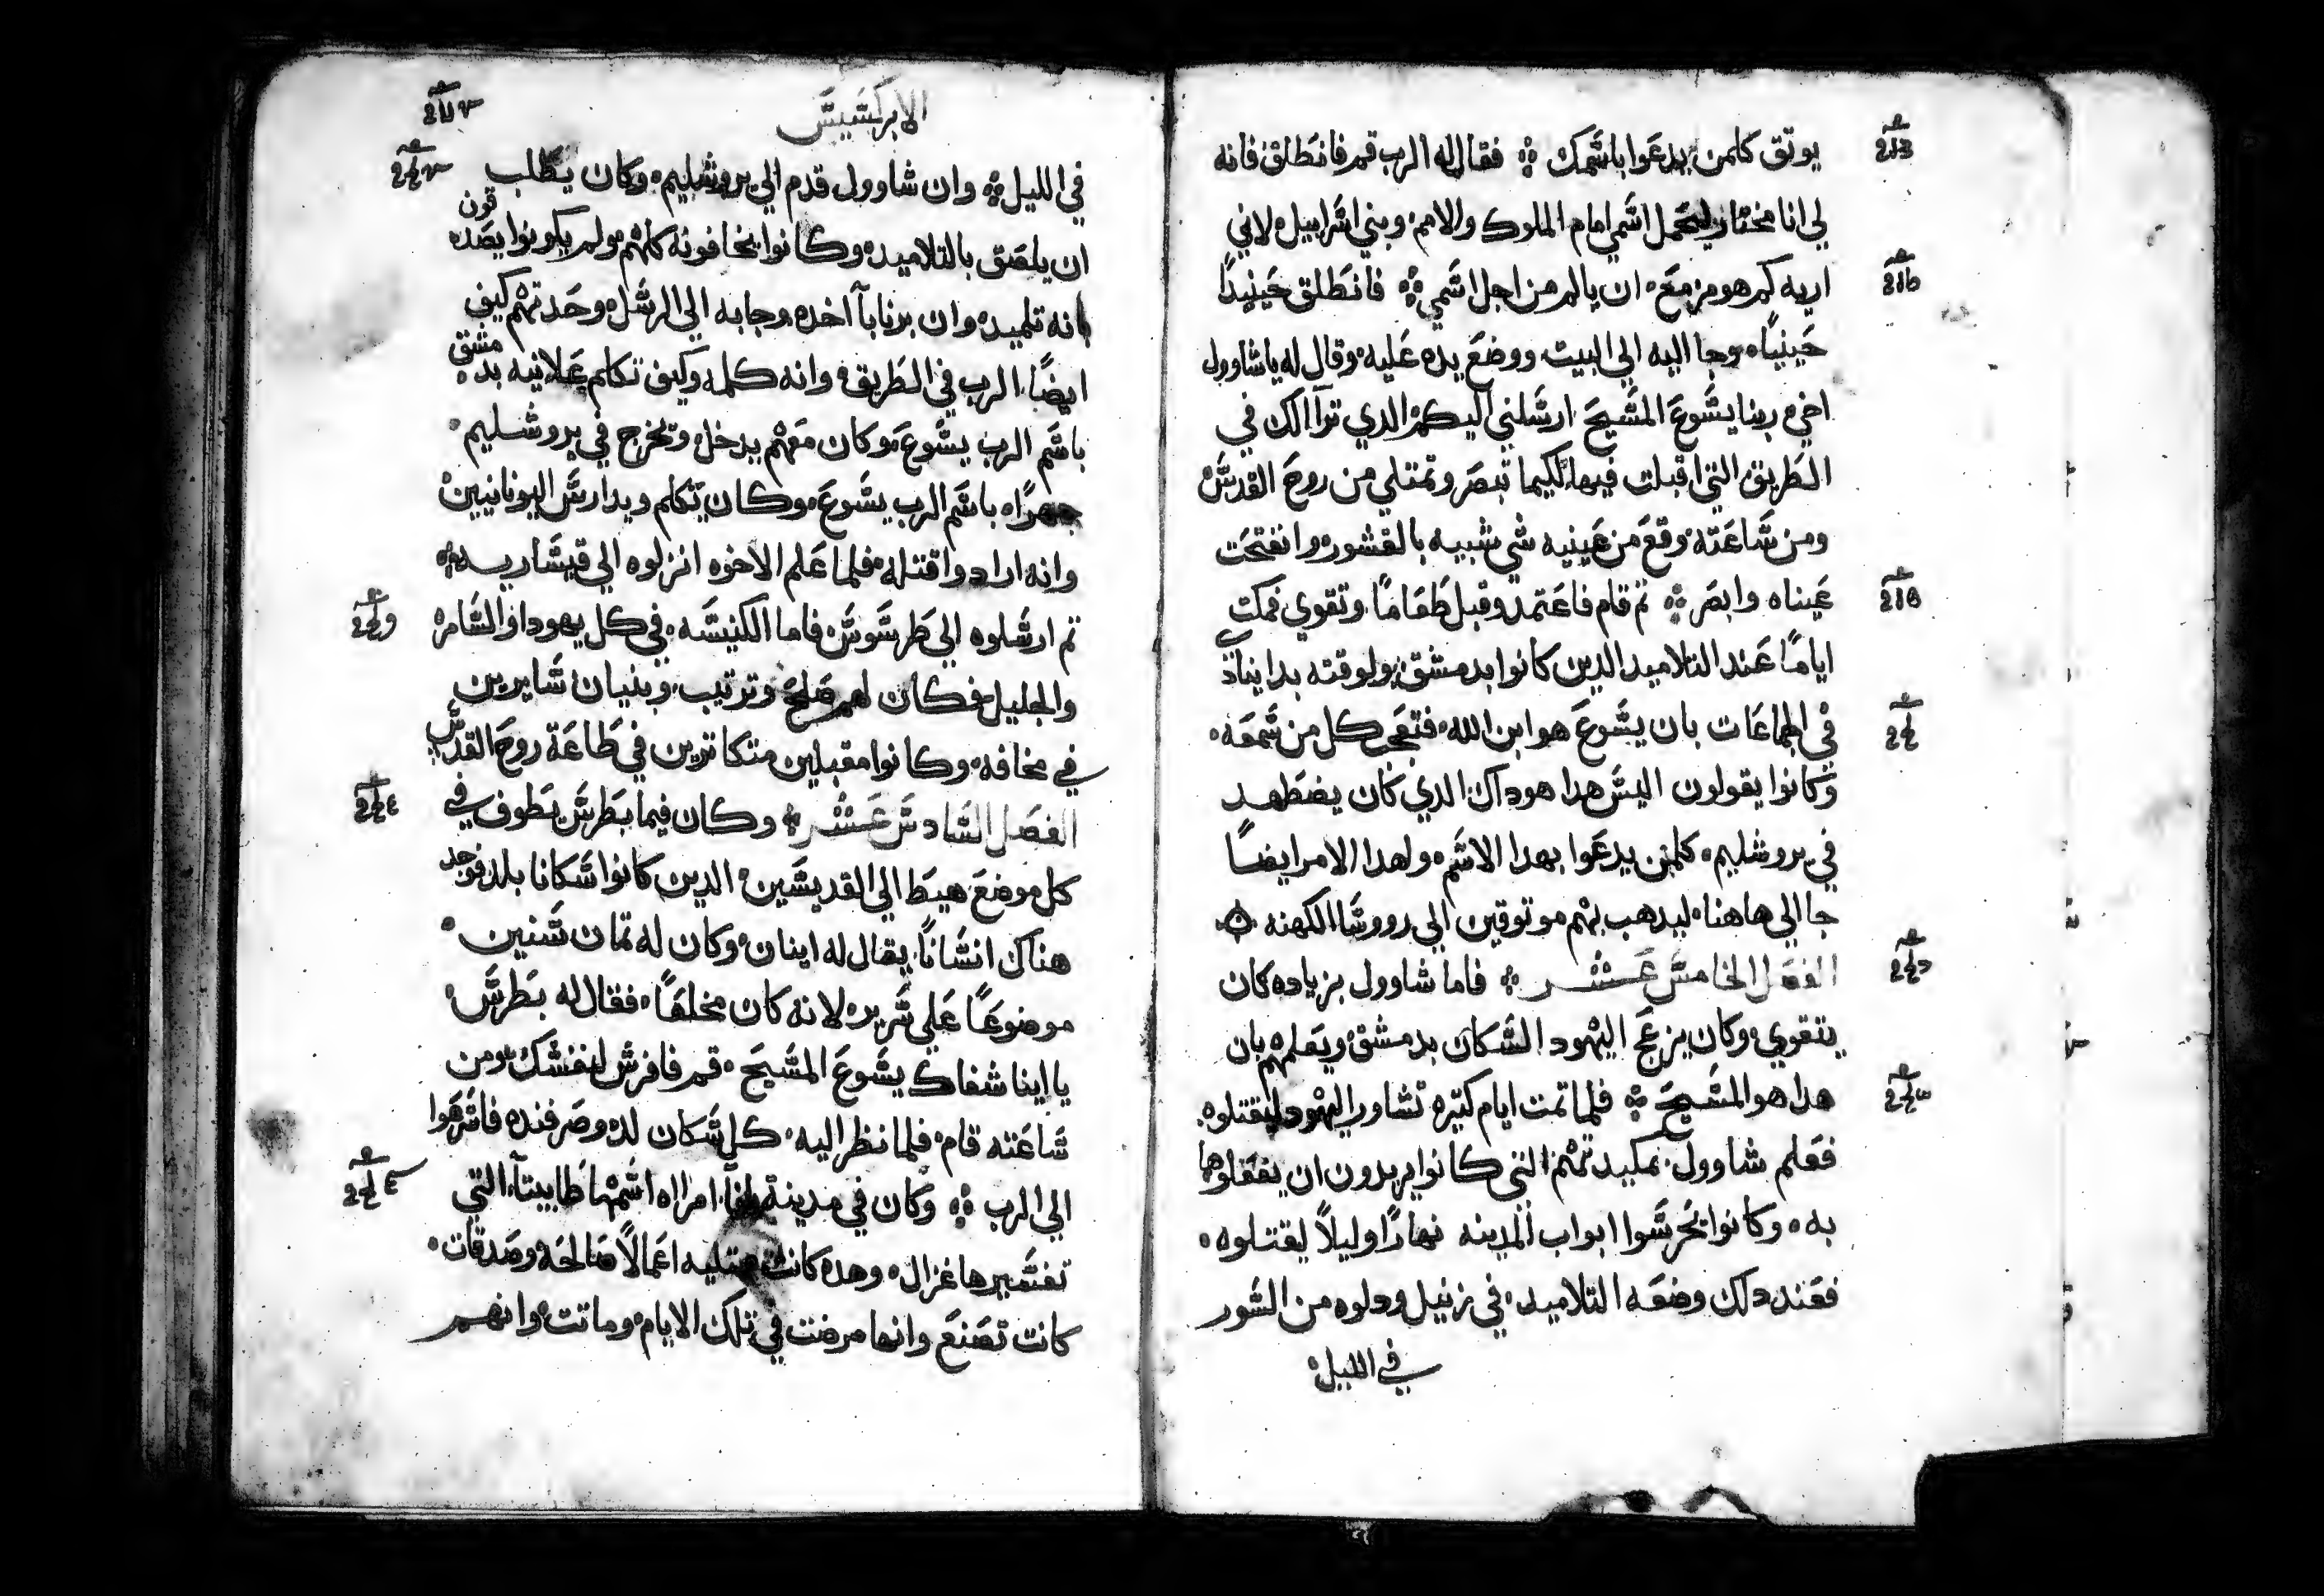 يوتق كلمن يدعوا باسمك ۞ فقال له الرب قم فانطلق فانه
لي انا مختار ليحمل اسمي امام الملوك والامم وبني اسراييل لاني
اريه كم هو مزمع ان يالم من اجل اسمي ۞ فانطلق حينيدًا
حينيًا وجا اليه الي البيت ووضع يده عليه وقال له يا شاوول
اخي ربنا يسوع المسيح ارسلني اليك الدي ترآا لك في
الطريق التي اقبلت فيها لكيما تبصر وتمتلي من روح القدس
ومن ساعته وقع من عينيه شي شبيه بالقشور وانفتحت
عيناه وابصر ۞ تم قام فاعتمد وقبل طعامًا وتقوي فمكت
ايامًا عند التلاميد الدين كانوا بدمشق ولوقته بدا ينادي
في الجماعات بان يسوع هو ابن الله فتعجب كل من سمعه
وكانوا يقولون اليس هدا هو داك الدي كان يضطهد
في يروشليم كلمن يدعوا بهدا الاسم ولهدا الامر ايضًا
جا الي هاهنا ليدهب بهم موتوقين الي رووسا الكهنه ۞
الفصل الخامس عشر ۞ فاما شاوول بزياده كان
يتقوي وكان يزعج اليهود السكان بدمشق ويعلمهم بان
هدا هو المسيح ۞ فلما تمت ايام كتيره تشاور اليهود ليقتلوه
فعلم شاوول بمكيدتهم التي كانوا يريدون ان يفعلوها
به وكانوا يحرسوا ابواب المدينه نهارًا وليلًا ليقتلوه
فعند دلك وضعه التلاميد في زنبيل ودلوه من السور
في الليل
الابركسيس
في الليل ۞ وان شاوول قدم الي يروشليم وكان يطلب
ان يلصق بالتلاميد وكانوا يخافونه كلهم ولم يكونوا يصدقون
بانه تلميد وان برنابآ اخده وجا به الي الرسل وحدتهم كيف
ايضًا الرب في الطريق وانه كلمه وكيف تكلم علانيه بدمشق
باسم الرب يسوع وكان معهم يدخل ويخرج في يروشليم
جهرًا باسم الرب يسوع وكان يتكلم ويدارس اليونانيين
وانه ارادوا قتله فلما علم الاخوه انزلوه الي قيساريه ۞
تم ارسلوه الي طرسوس فاما الكنيسه في كل يهودا والسامره
والجليل فكان لهم صلح وترتيب وبنيان سايرين
في مخافه وكانوا مقبلين متكاترين في طاعة روح القدس
الفصل السادس عشر ۞ وكان فيما بطرس يطوف في
كل موضع هبط الي القديسين الدين كانوا سكانا بلد فوجد
هناك انسانًا يقال له اينان وكان له تمان سنين
موضوعًا علي سريره لانه كان مخلعًا فقال له بطرس
يا اينا شفاك يسوع المسيح قم فافرش لنفسك ومن
ساعته قام فلما نظر اليه كل سكان لد وصرفنده فاسرعوا
الي الرب ۞ وكان في مدينة يافآ امراه اسمها طابيتآ التي
تفسيرها غزال وهده كانت ممتليه اعمالًا صالحه وصدقات
كانت تصنع وانها مرضت في تلك الايام وماتت وانهم